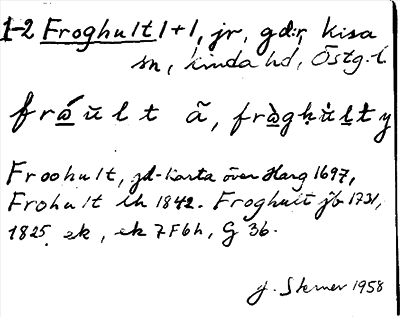 1-2 Froghult 1+1, jr, gd:r, Kisa
sn, Kinda hd, Östg. l.
frǻu̇lt ã, fràgḥu̇ḷṭy
Froohult, jd-karta över Harg 1697,
Frohult lh 1842. Froghult jb 1731,
1825, ek, ek 7F6h, G 36.
J. Sterner 1958